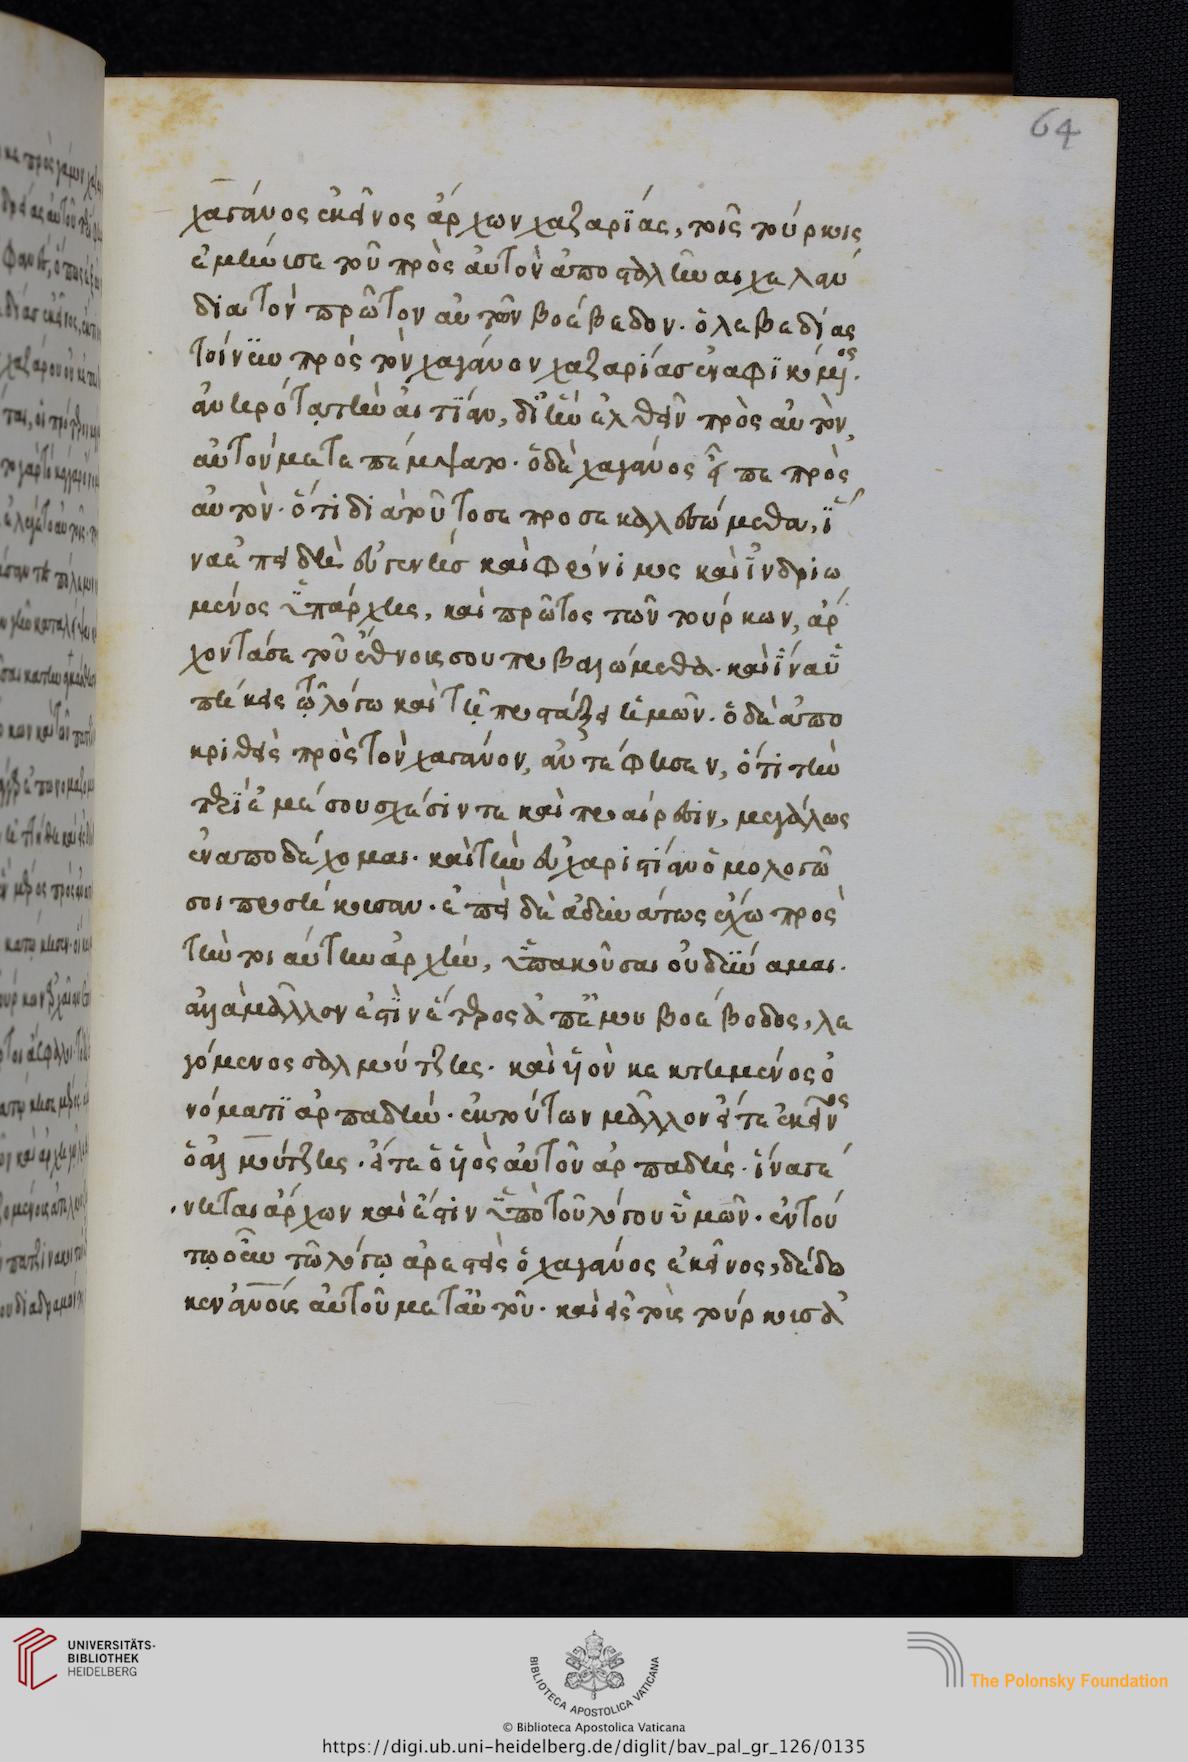 64
χαγάνος ἐκεῖνος ἄρχων χαζαρίας, τοῖς τούρκοις
ἐμήνυσε τοῦ πρὸς αὐτὸν ἀποσταλῆναι χελαν
δία τὸν πρῶτον αὐτῶν βοέβοδον. ὁ λεβεδίας
τοίνυν πρὸς τὸν χαγάνον χαζαρίας ἐναφικόμενος.
ἀνερότα τὴν αἰτίαν, δι' ἣν ἐλθεῖν πρὸς αὐτὸν,
αὐτὸν μετεπέμψατο. ὁ δὲ χαγάνος εἶπε πρὸς
αὐτὸν. ὅτι διὰ τοῦτο σε προσεκαλεσώμεθα, ἵ
να ἐπειδὴ εὐγενὴς καὶ φρόνιμος καὶ ἰνδριω
μένος ὑπάρχης, καὶ πρῶτος τῶν τούρκων, ἄρ
χοντά σε τοῦ ἔθνους σου προβαλώμεθα. καὶ ἵνα ὑ
πήκεις τῷ λόγω καὶ τῇ προστάξει ἡμῶν. ὁ δὲ ἀπο
κριθεὶς πρὸς τὸν χαγάνον, ἀντέφησεν, ὅτι τὴν
περὶ ἐμέ σου σχέσιν τε καὶ προαίρεσιν, μεγάλως
ἐναποδέχομαι. καὶ τὴν εὐχαριστίαν ὁμολογῶ
σοι προσήκουσαν. ἐπεὶ δὲ ἀδυνάτως ἔχω πρὸς
τὴν τοιαύτην ἀρχὴν, ὑπακοῦσαι οὐ δύναμαι.
ἀλλὰ μᾶλλον ἐστὶν ἕτερος ἀπ' ἐμοῦ βοέβοδος, λε
γόμενος σαλμούτζης. καὶ υἱὸν κεκτημένος ὀ
νόματι ἀρπαδὴν. ἐκ τούτων μᾶλλον εἴτε ἐκεῖνος
ὁ ἀλμούτζης. εἴτε ὁ υἱὸς αὐτοῦ ἀρπαδὴς. ἵνα γέ
νηται ἄρχων καὶ ἔστιν ὑπὸ τοῦ λόγου ὑμῶν. ἐν τού
τῳ οὖν τῷ λόγῳ ἀρεσθεὶς ὁ χαγάνος ἐκεῖνος, δέδω
κεν ἀνοὺς αὐτοῦ μετ' αὐτοῦ. καὶ εἰς τοὺς τούρκους ἀ
UNIVERSITÄTS-
BIBLIOTHEK
HEIDELBERG
BIBLIOTECA APOSTOLICA VATICANA
The Polonsky Foundation
© Biblioteca Apostolica Vaticana
https://digi.ub.uni-heidelberg.de/diglit/bav_pal_gr_126/0135